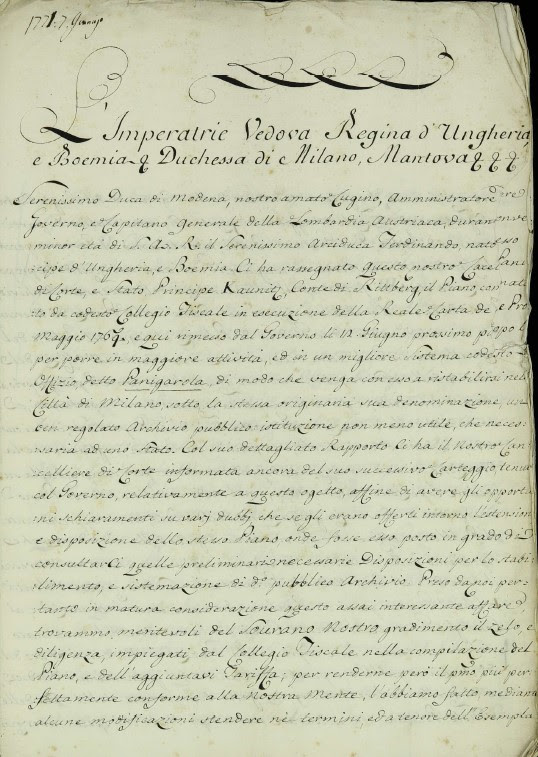 1771. 7. Gennajo
L'Imperatrice Vedova Regina d'Ungheria,
e Boemia, Duchessa di Milano, Mantova
Serenissimo Duca di Modena, nostro amato Cugino, Amministratore
Governo, e Capitano Generale della Lombardia Austriaca, durante
minor età di S. A. R. il Serenissimo Arciduca Ferdinando, nato
cipe d'Ungheria, e Boemia. Ci ha rassegnato questo nostro
di Corte, e Stato Principe Kaunitz, Conte di Rittberg il Piano,
to da codesto Collegio Fiscale in esecuzione della Reale Carta de
Maggio 1769, e qui rimesso dal Governo li 12 Giugno prossimo
per porre in maggiore attività, ed in un migliore sistema codesto
Offizio, detto Panigarola, di modo che venga con esso a ristabilirsi nel
Città di Milano, sotto la stessa originaria sua denominazione, un
ben regolato Archivio pubblico istituzione non meno utile, che neces-
saria ad uno Stato. Col suo dettagliato Rapporto Ci ha il Nostro Can
celliere di Corte informata ancora del suo successivo Carteggio, tenuto
col Governo, relativamente a questo ogetto, affine di avere gli opportu
ni schiaramenti su varj dubbj, che se gli erano offerti intorno l'estensione
e disposizione dello stesso Piano onde fosse esso posto in grado di
consultarCi quelle preliminari necessarie Disposizioni per lo stabi
limento, e sistemazione di do pubblico Archivio. Preso da noi per-
tanto in matura considerazione questo assai interessante affare
trovammo, meritevoli del Sovrano Nostro gradimento il zelo, e
diligenza, impiegati dal Collegio Fiscale nella compilazione del
Piano, e dell'aggiuntavi Tariffa; per renderne però il pmo più per
fettamente conforme alla Nostra Mente, l'abbiamo fatto, median
alcune modificazioni stendere nè termini ed a tenore dell' Esempla